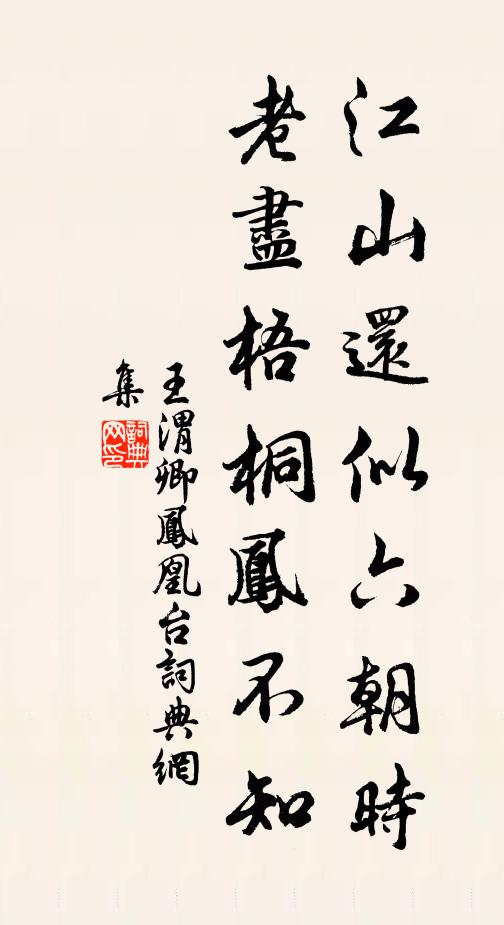 江山還似六朝時
老盡梧桐鳳不知
王渭卿鳳凰台詞典網
集
詞典
网印